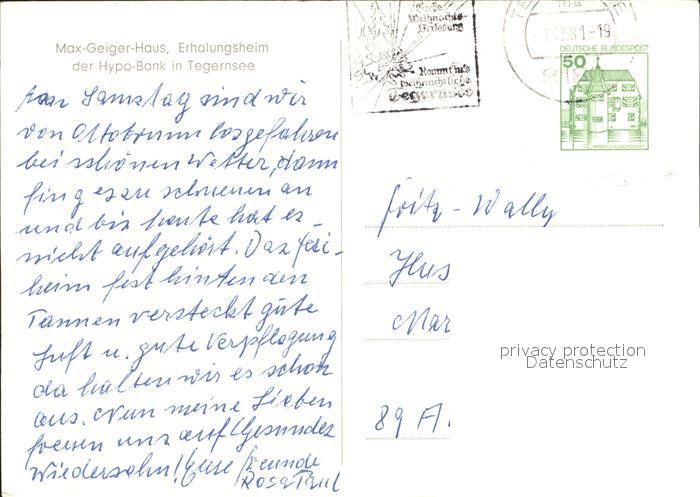 Max-Geiger-Haus, Erholungsheim
der Hypo-Bank in Tegernsee
Am Samstag sind wir
von Ottobrunn losgefahren
bei schönen Wetter, dann
fing es zu schneien an
und bis heute hat es
nicht aufgehört. Das
heim fest hinten den
Tannen versteckt gute
Luft u. gute Verpflegung
da halten wir es schon
aus. Nun meine Lieben
freuen uns auf Gesundes
Wiedersehn! Eure Freunde
Rosa Paul
Große
Weihnachts-
Verlosung
Kommt ins
weihnachtliche
Tegernsee
.12.81-19
DEUTSCHE BUNDESPOST
50
Fritz - Wally
Hus
Mar
89 A
privacy protection
Datenschutz